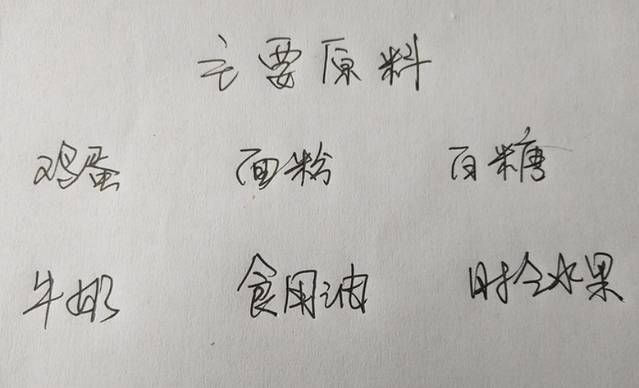 主要原料
鸡蛋 面粉 白糖
牛奶 食用油 时令水果